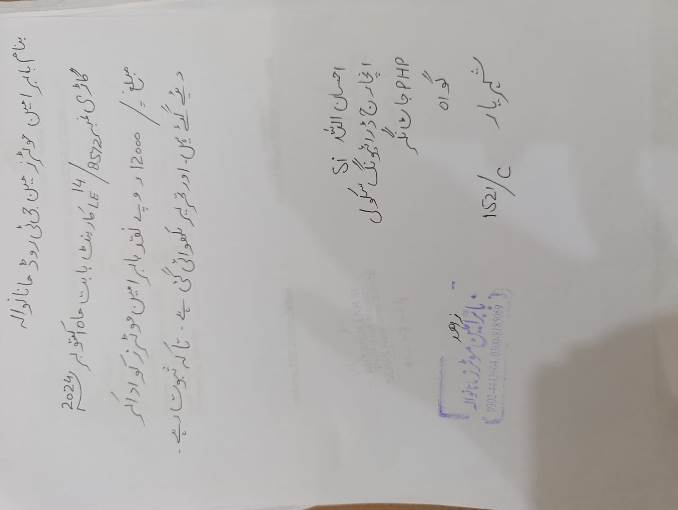 بنام بابر امین موٹرز مین جی ٹی روڈ مانانوالہ
گاڑی نمبر 8572/14 LE کا رینٹ بابت ماہ اکتوبر 2024
مبلغ =/12000 روپے نقد بابر امین موٹرز کو ادا کر
دیئے گئے ہیں۔ اور تحریر لکھوائی گئی ہے۔ تاکہ ثبوت رہے۔
احسان اللہ Si
انچارج ڈرائیونگ سکول
PHP
گواہ
شہریار
1521/C
بابر امین موٹرز مانانوالہ